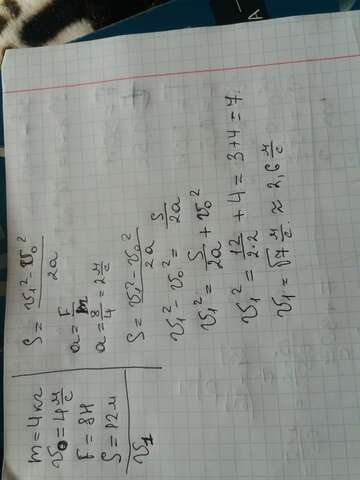 m = 4 кг
v₀ = 4 м/с
F = 8 Н
S = 12 м
v₁
S = (v₁² - v₀²)/2a
a = F/m
a = 8/4 = 2 м/с
S = (v₁² - v₀²)/2a
v₁² - v₀² = S/2a
v₁² = S/2a + v₀²
v₁² = 12/2·2 + 4 = 3+4 = 7.
v₁ = √7 м/с ≈ 2,6 м/с